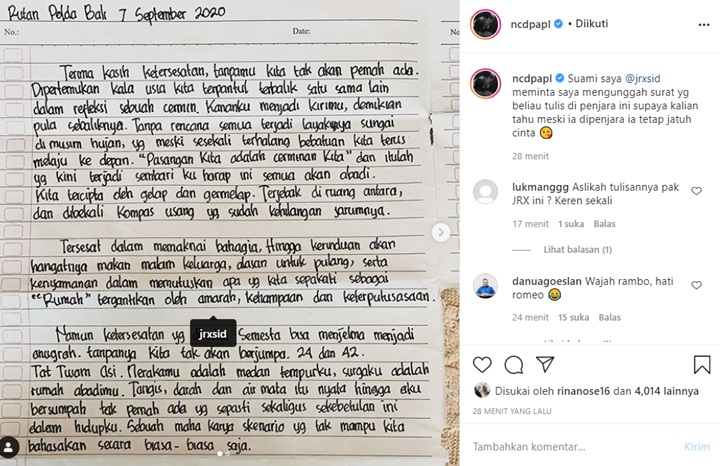 Rutan Polda Bali 7 September 2020
No.:
Date:
No.:
Terima kasih ketersesatan, tanpamu kita tak akan pernah ada.
Dipertemukan kala usia kita terpantul terbalik satu sama lain
dalam refleksi sebuah cermin. Kananku menjadi kirimu, demikian
pula sebaliknya. Tanpa rencana semua terjadi layaknya sungai
di musim hujan, yg meski sesekali terhalang bebatuan kita terus
melaju ke depan. "Pasangan kita adalah cerminan kita" dan itulah
yg kini terjadi sembari ku harap ini semua akan abadi.
Kita tercipta oleh gelap dan germelap. Terjebak di ruang antara,
dan dibekali kompas usang yg sudah kehilangan jarumnya.
Tersesat dalam memaknai bahagia, Hingga kerinduan akan
hangatnya makan malam keluarga, alasan untuk pulang, serta
kenyamanan dalam memutuskan apa yg kita sepakati sebagai
"Rumah" tergantikan oleh amarah, kehampaan dan keterputusasaan.
jrxsid
Namun ketersesatan yg Semesta bisa menjelma menjadi
anugrah. tanpanya kita tak akan berjumpa. 24 dan 42.
Tat Twam Asi. Nerakamu adalah medan tempurku, surgaku adalah
rumah abadimu. Tangis, darah dan air mata itu nyata hingga aku
bersumpah tak pernah ada yg sepasti sekaligus sekebetulan ini
dalam hidupku. Sebuah maha karya skenario yg tak mampu kita
bahasakan secara biasa-biasa saja.
ncdpapl • Diikuti
ncdpapl Suami saya @jrxsid
meminta saya mengunggah surat yg
beliau tulis di penjara ini supaya kalian
tahu meski ia dipenjara ia tetap jatuh
cinta 😘
28 menit
lukmanggg Aslikah tulisannya pak
JRX ini ? Keren sekali
17 menit 1 suka Balas
Lihat balasan (1)
danuagoeslan Wajah rambo, hati
romeo 😂
24 menit 15 suka Balas
Disukai oleh rinanose16 dan 4,014 lainnya
28 MENIT YANG LALU
Tambahkan komentar...
Kirim